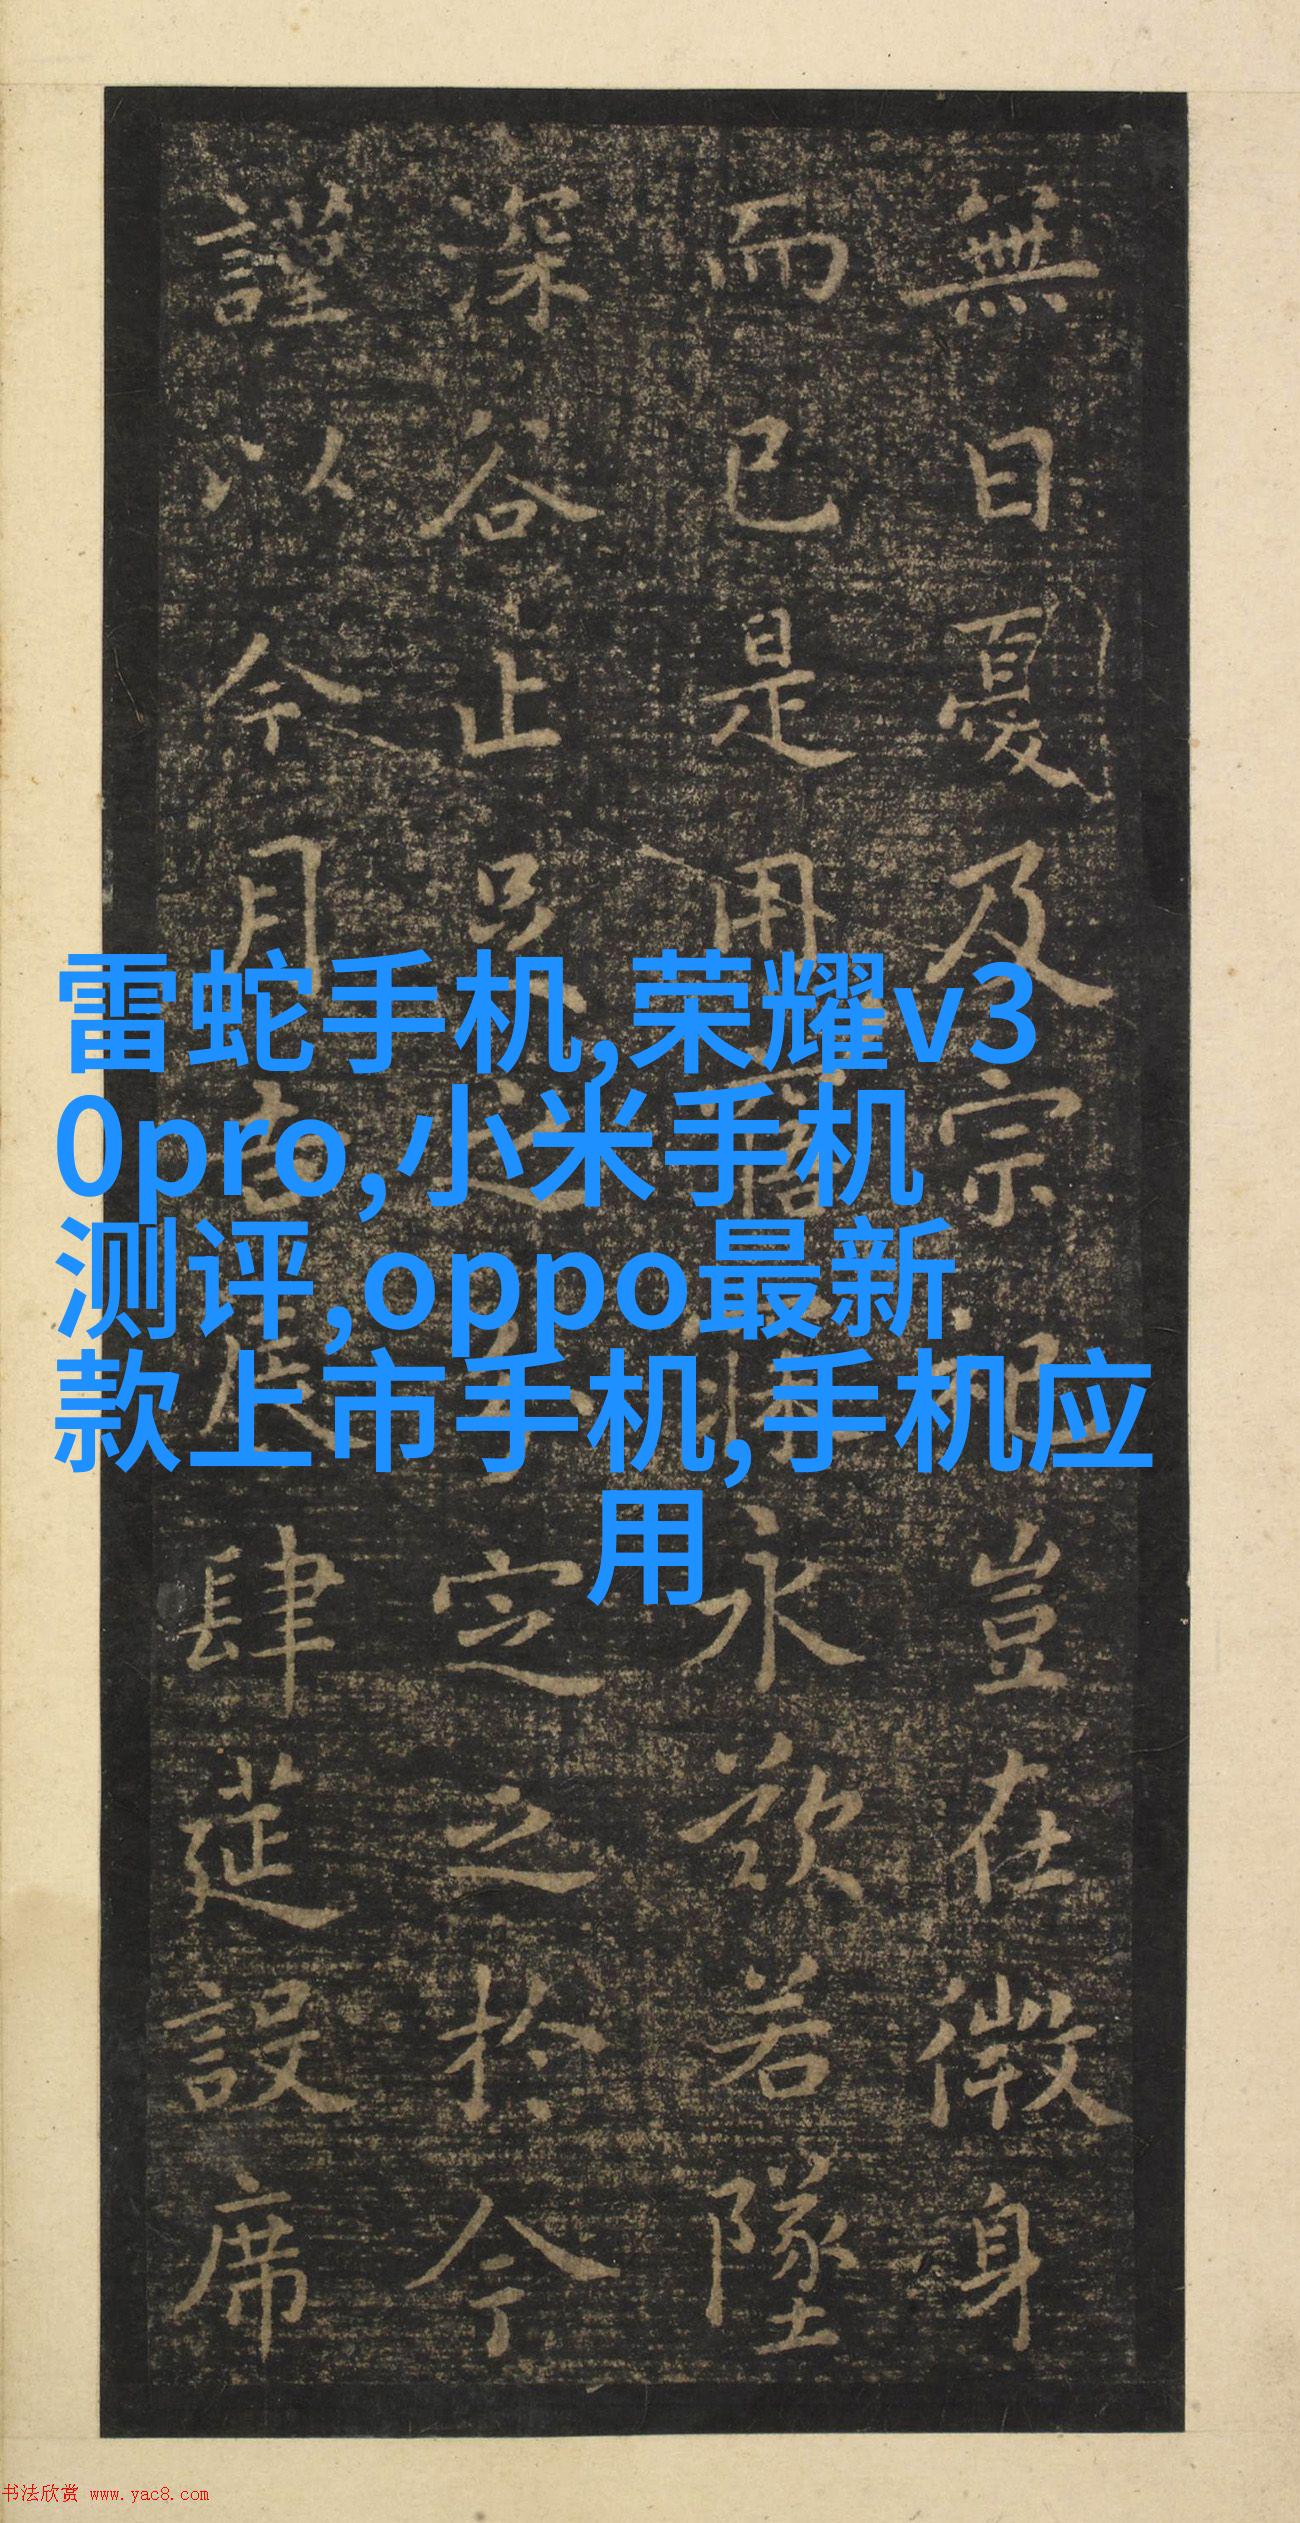 無日憂及宗祀豈在微身
而已是用寤寐永歎若墜
深谷止足之分定之於今
謹以今月吉辰肆筵設席
雷蛇手机,荣耀v3
0pro,小米手机
测评,oppo最新
款上市手机,手机应
用
书法欣赏 www.yac8.com